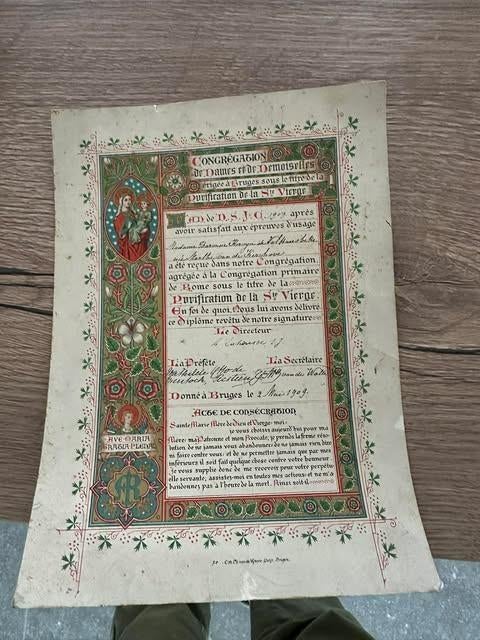 Congrégation
de Dames et de Demoiselles
Érigée à Bruges sous le titre de la
Purification de la Ste Vierge
L'AN de N. S. J. C. 1909 après
avoir satisfait aux épreuves d'usage
Madame
née Marthe van de
a été reçue dans notre Congrégation
agrégée à la Congrégation primaire
de Rome sous le titre de la
Purification de la Ste Vierge.
En foi de quoi Nous lui avons délivré
ce Diplôme revêtu de notre signature
Le Directeur
S.J.
La Préfète La Secrétaire
van der
Donné à Bruges le 2 1909.
Acte de Consécration
Sainte Marie Mère de Dieu et Vierge: moi:
je vous choisis aujourd'hui pour ma
Mère: ma Patronne et mon Avocate; je prends la ferme réso-
lution, de ne jamais vous abandonner; de ne jamais rien dire
ni faire contre vous; et de ne permettre jamais que par mes
inférieurs il soit fait quelque chose contre votre honneur.
Je vous supplie donc de me recevoir pour votre perpétu-
elle servante; assistez-moi en toutes mes actions; et ne m'a-
bandonnez pas à l'heure de la mort. Ainsi soit-il.
AVE MARIA
GRATIA PLENA
Bruges.